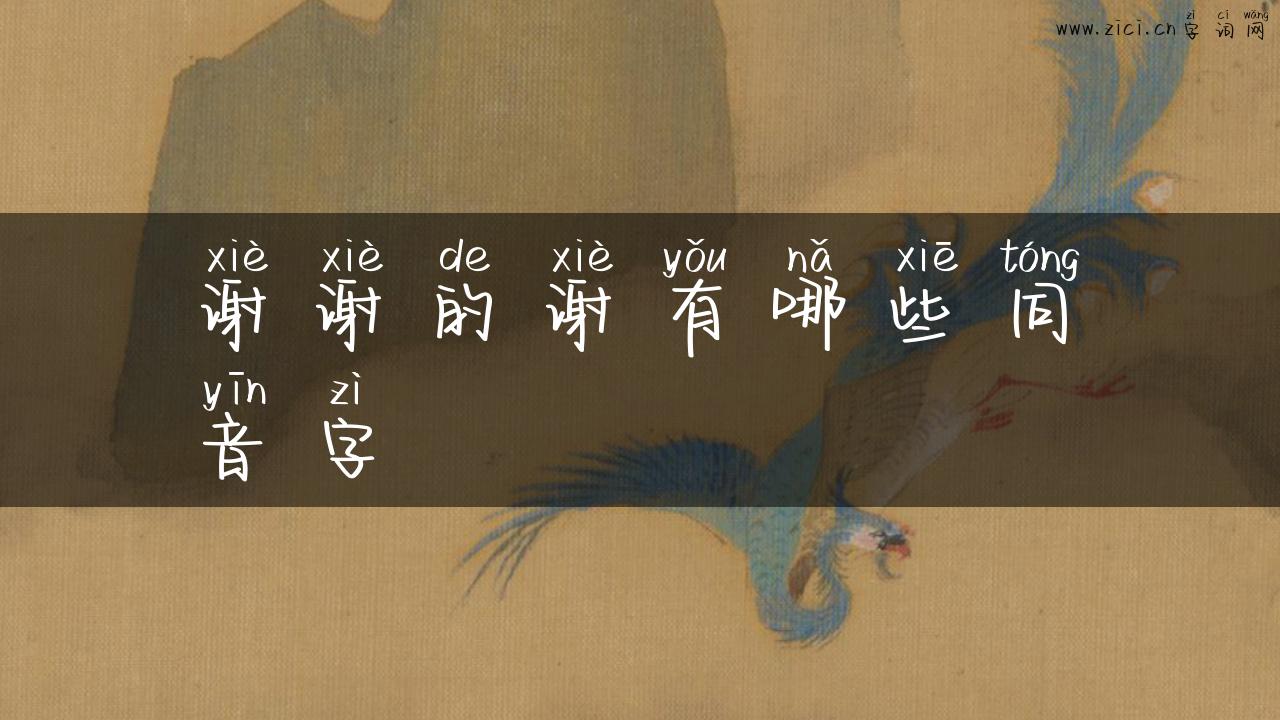 zì cí wǎng
www.zici.cn 字 词 网
xiè xiè de xiè yǒu nǎ xiē tóng
谢 谢 的 谢 有 哪 些 同
yīn zì
音 字